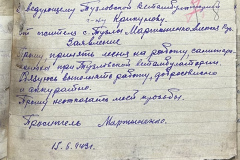 Заведующему Тузловской Ветамбулаторией
г-ну Крикунову.
От жителя с Тузлы Мартыненко
Заявление
Прошу принять меня на работу санитара
при Тузловской ветамбулатории.
Обязуюсь выполнять работу, добросовестно
и аккуратно.
Прошу не отказать моей просьбы.
Проситель Мартыненко.
15.6.1943г.